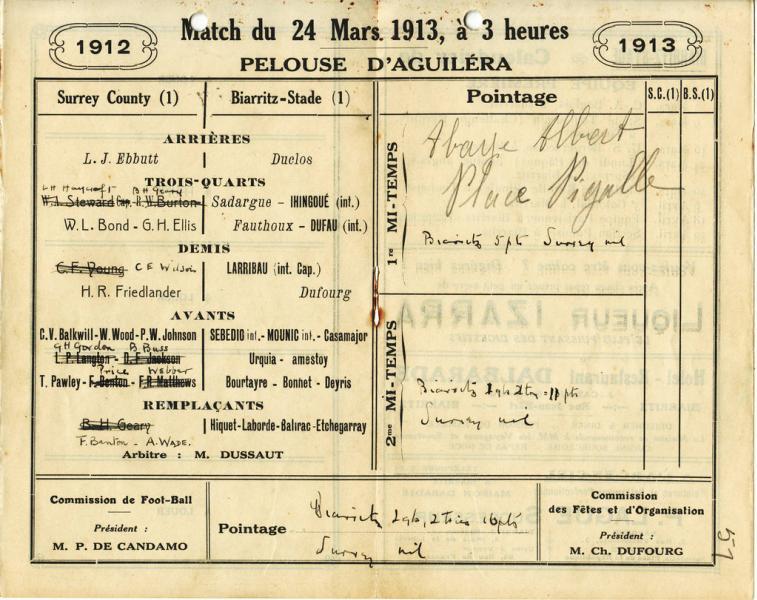 1912
Match du 24 Mars 1913, à 3 heures
1913
PELOUSE D'AGUILÉRA
Surrey County (1)
Biarritz-Stade (1)
ARRIÈRES
L. J. Ebbutt
Duclos
TROIS-QUARTS
LH Haycraft B H Geary
W. J. Steward Cap. R. W. Burton
Sadargue - IHINGOUÉ (int.)
W. L. Bond - G. H. Ellis
Fauthoux - DUFAU (int.)
DEMIS
C. F. Young C E Wilson
LARRIBAU (int. Cap.)
H. R. Friedlander
Dufourg
AVANTS
C.V. Balkwill - W. Wood - P.W. Johnson
SEBEDIO int. - MOUNIC int. - Casamajor
GH Gordon B Buss
L. P. Langton - D. F. Jackson
Urquia - amestoy
Price Webber
T. Pawley - F. Benton - F R Matthews
Bourtayre - Bonnet - Deyris
REMPLAÇANTS
B. H. Geary
Hiquet-Laborde-Balirac-Etchegarray
F. Benton - A. WADE.
Arbitre : M. DUSSAUT
Pointage
S.C. (1)
B.S. (1)
1re MI-TEMPS
Albert
Place Pigalle
Biarritz 5 pts Surrey nil
2me MI-TEMPS
Biarritz 1 gl 2 tries = 11 pts
Surrey nil
Commission de Foot-Ball
Président :
M. P. DE CANDAMO
Pointage
Biarritz 2 gls, 2 tries 16 pts
Surrey nil
Commission
des Fêtes et d'Organisation
Président :
M. Ch. DUFOURG
57